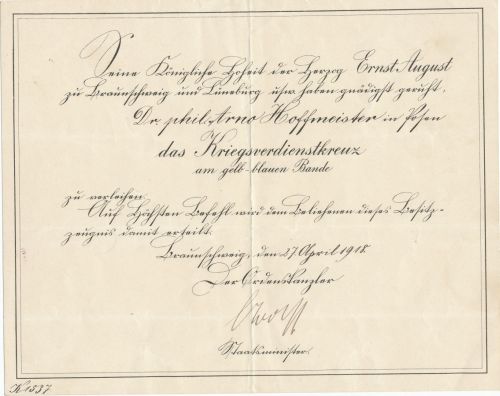 Seine Königliche Hoheit der Herzog Ernst August
zu Braunschweig und Lüneburg usw. haben gnädigst geruht,
Dr. phil. Arno Hoffmeister in Posen
das Kriegsverdienstkreuz
am gelb-blauen Bande
zu verleihen.
Auf Höchsten Befehl wird dem Beliehenen dieses Besitz-
zeugnis damit erteilt.
Braunschweig, den 27. April 1918.
Der Ordenskanzler
Staatsminister.
K 1537